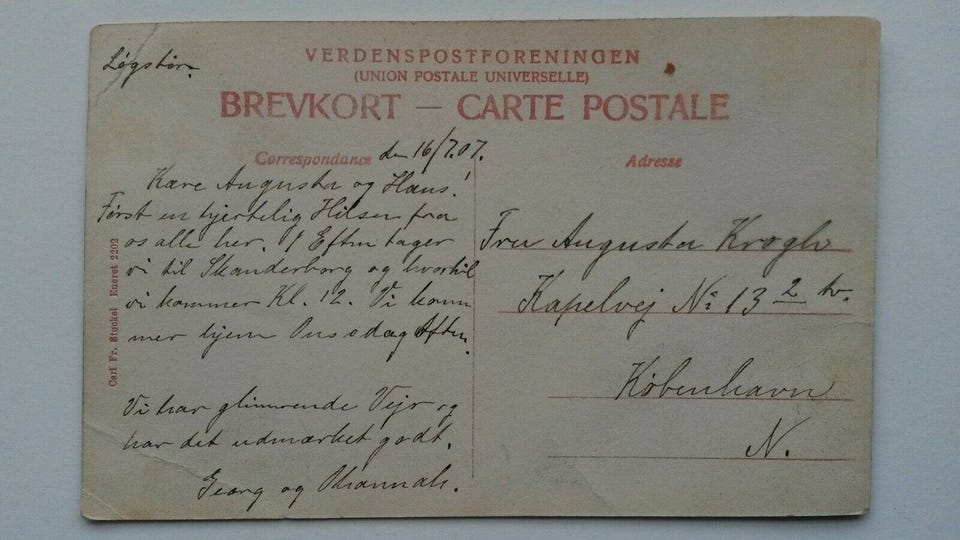 Løgstør.
VERDENSPOSTFORENINGEN
(UNION POSTALE UNIVERSELLE)
BREVKORT — CARTE POSTALE
Correspondance
den 16/7.07.
Adresse
Kære Augusta og Hans!
Først en hjertelig Hilsen fra
os alle her. I Eftm tager
vi til Skanderborg og hvortil
vi kommer Kl. 12. Vi kom
mer hjem Onsdag Aften.
Vi har glimrende Vejr og
har det udmærket godt.
Georg og
Carl Fr. Støckel Eneret 2202
Fru Augusta Krogh
Kapelvej No 13 2 tv.
København
N.